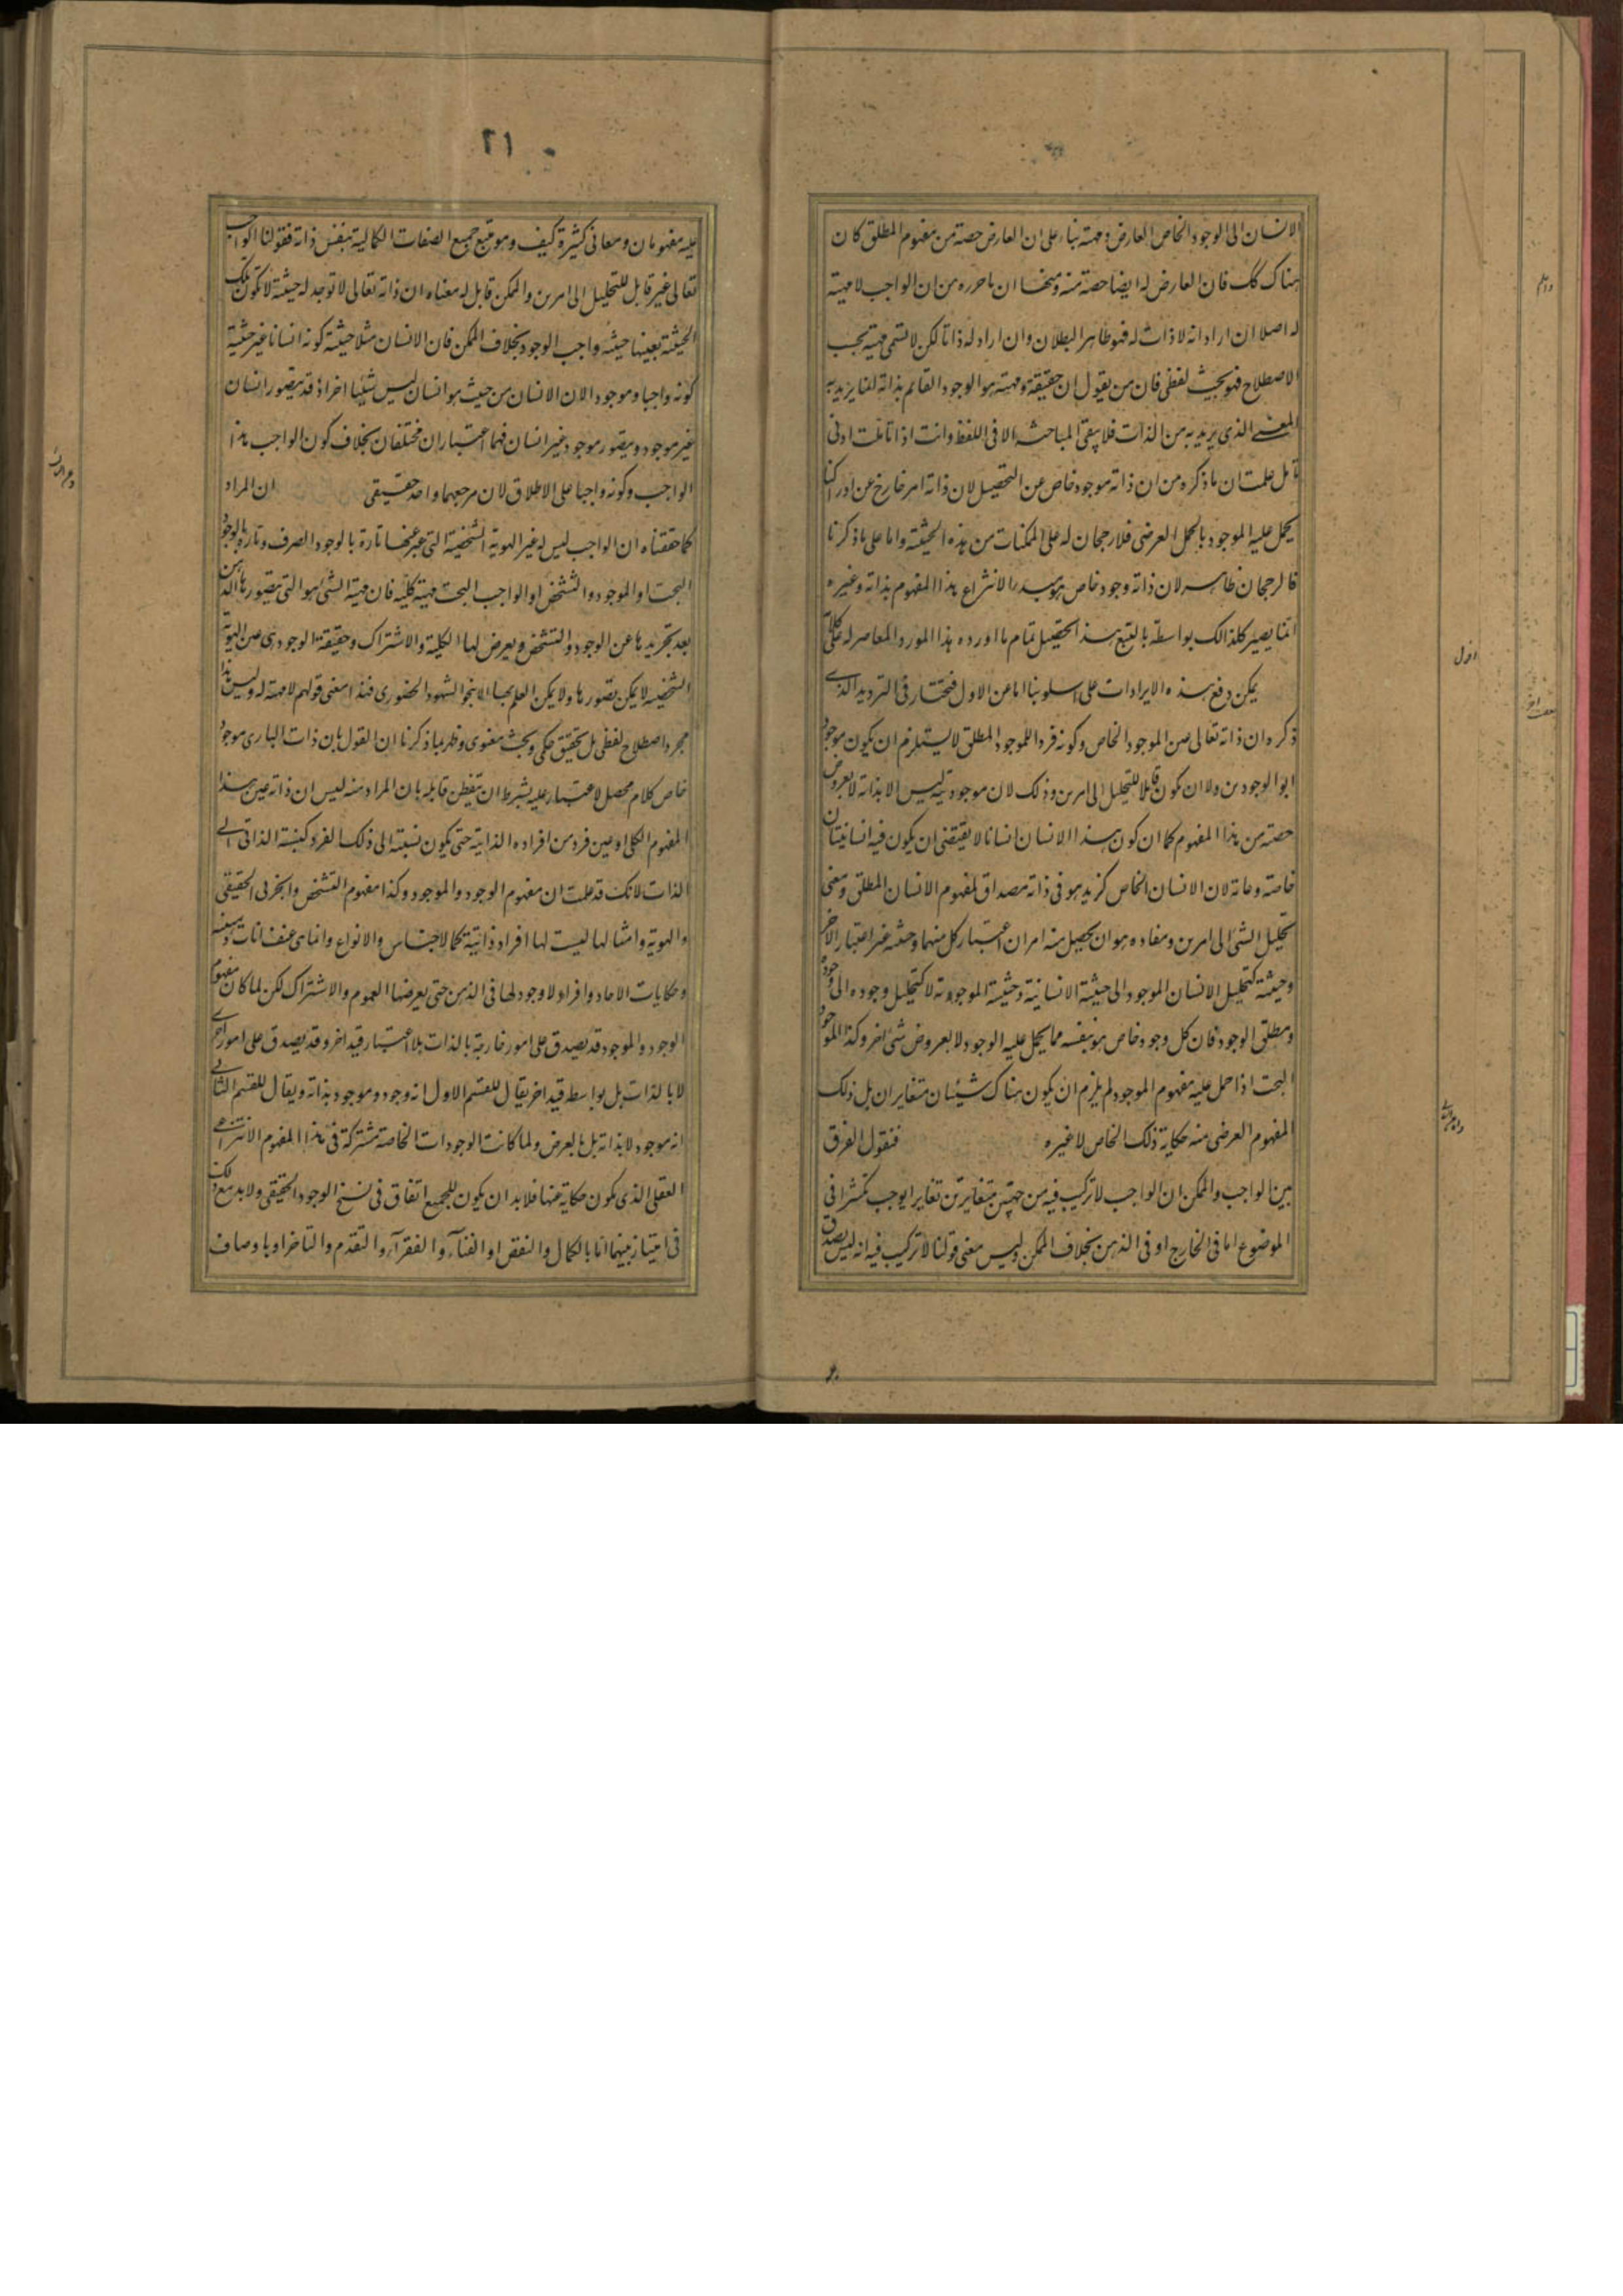 الانسان الى الوجود الخاص العارض ومهيته بناء على ان العارض حصة من مفهوم المطلق كان
هناك كك فان العارض له ايضا حصة منه ومنها ان ما حرره من ان الواجب لا مهية
له اصلا ان اراد انه لا ذات له فهو ظاهر البطلان وان اراد له ذاتا لكن لا تسمى مهية بحسب
الاصطلاح فهو بحث لفظى فان من يقول ان حقيقة ومهيته هو الوجود القائم بذاته انما يريد به
المعنى الذى يريد به من الذات فلا يبقى المباحثه الا فى اللفظ وانت اذا تاملت ادنى
تامل علمت ان ما ذكره من ان ذاته موجود خاص عن التحصيل لان ذاته امر خارج عن ادراكنا
يحمل عليه الموجود بالحمل العرضى فلا رجحان له على الممكنات من هذه الحيثية واما على ما ذكرنا
فالرجحان ظاهر لان ذاته وجود خاص هو مبدء الانتزاع هذا المفهوم بذاته وغيره
انما يصير كذلك بواسطة بالتبع هذا تحصيل تمام ما اورده هذا المورد المعاصر له على كلامه
يمكن دفع هذه الايرادات على اسلوبنا اما عن الاول فنختار فى الترديد الذى
ذكره ان ذاته تعالى عين الموجود الخاص وكونه فردا للموجود المطلق لا يستلزم ان يكون موجودا
بوالوجودين ولا ان يكون قابلا للتحليل الى امرين وذلك لان موجوديته ليس الا بذاته لا بعروض
حصة من هذا المفهوم كما ان كون هذا الانسان انسانا لا يقتضى ان يكون فيه انسانيتان
خاصة وعامة لان الانسان الخاص كزيد هو فى ذاته مصداق لمفهوم الانسان المطلق ومعنى
تحليل الشى الى امرين ومفاده هو ان يحصل منه امران اعتبار كل منهما وحيثيته غير اعتبار الاخر
وحيثيته كتحليل الانسان الموجود الى حيثية الانسانية وحيثية الموجودية لا كتحليل وجوده الى وجوده
ومطلق الوجود فان كل وجود خاص هو بنفسه مما يحمل عليه الوجود لا بعروض شى اخر وكذا الموجود
البحت اذا حمل عليه مفهوم الموجود لم يلزم ان يكون هناك شيئان متغايران بل ذلك
المفهوم العرضى منه حكاية ذلك الخاص لا غيره فنقول الفرق
بين الواجب والممكن ان الواجب لا تركيب فيه من جهتين متغايرتين تغايرا يوجب تكثرا فى
الموضوع اما فى الخارج او فى الذهن بخلاف الممكن وليس معنى قولنا لا تركيب فيه انه ليس يصدق
اول
٢١
عليه مفهومان ومعانى كثيرة كيف وهو منبع جميع الصفات الكمالية بنفس ذاته فقولنا الواجب
تعالى غير قابل للتحليل الى امرين والممكن قابل له معناه ان ذاته تعالى لا توجد له حيثية لا تكون تلك
الحيثية بعينها حيثية واجب الوجود بخلاف الممكن فان الانسان مثلا حيثية كونه انسانا غير حيثية
كونه واجبا وموجودا لان الانسان من حيث هو انسان ليس شيئا اخر اذ قد يتصور انسان
غير موجود ويتصور موجود غير انسان فهما اعتباران مختلفان بخلاف كون الواجب هذا
الواجب وكونه واجبا على الاطلاق لان مرجعهما واحد حقيقى ان المراد
كما حققناه ان الواجب ليس له غير الهوية الشخصية التى عبر عنها تارة بالوجود الصرف وتارة بالوجود
البحت او الموجود والتشخص او الواجب البحت مهية كلية فان مهية الشى هو التى يتصورها الذهن
بعد تجريدها عن الوجود والتشخص ويعرض لها الكلية والاشتراك وحقيقة الوجود هى عين الهوية
الشخصية لا يمكن تصورها ولا يمكن العلم بها الا بنحو الشهود الحضورى فهذا معنى قولهم لا مهية له وليس هذا
مجرد اصطلاح لفظى بل تحقيق حكمى وبحث معنوى وظهر بما ذكرنا ان القول بان ذات البارى موجود
خاص كلام محصل لا غبار عليه بشرط ان يتفطن قايله بان المراد منه ليس ان ذاته عين هذا
المفهوم الكلى او عين فرد من افراده الذاتية حتى يكون نسبته الى ذلك الفرد كنسبة الذاتى الى
الذات لانك قد علمت ان مفهوم الوجود والموجود وكذا مفهوم التشخص والجزئى الحقيقى
والهوية وامثالها ليست لها افراد ذاتية كالاجناس والانواع وانما هى عنوانات
وحكايات الاحاد وافراد لا وجود لها فى الذهن حتى يعرضها العموم والاشتراك لكن لما كان مفهوم
الوجود والموجود قد يصدق على امور خارجية بالذات بلا اعتبار قيد اخر وقد يصدق على امور اخرى
لا بالذات بل بواسطة قيد اخر يقال للقسم الاول انه وجود وموجود بذاته ويقال للقسم الثانى
انه موجود لا بذاته بل بالعرض ولما كانت الوجودات الخاصة مشتركة فى هذا المفهوم الانتزاعى
العقلى الذى يكون حكاية عنها فلا بد ان يكون للجميع اتفاق فى سنخ الوجود الحقيقى ولا بد مع ذلك
فى امتياز بينهما اما بالكمال والنقص او الغناء والفقراء والتقدم والتاخر او باوصاف